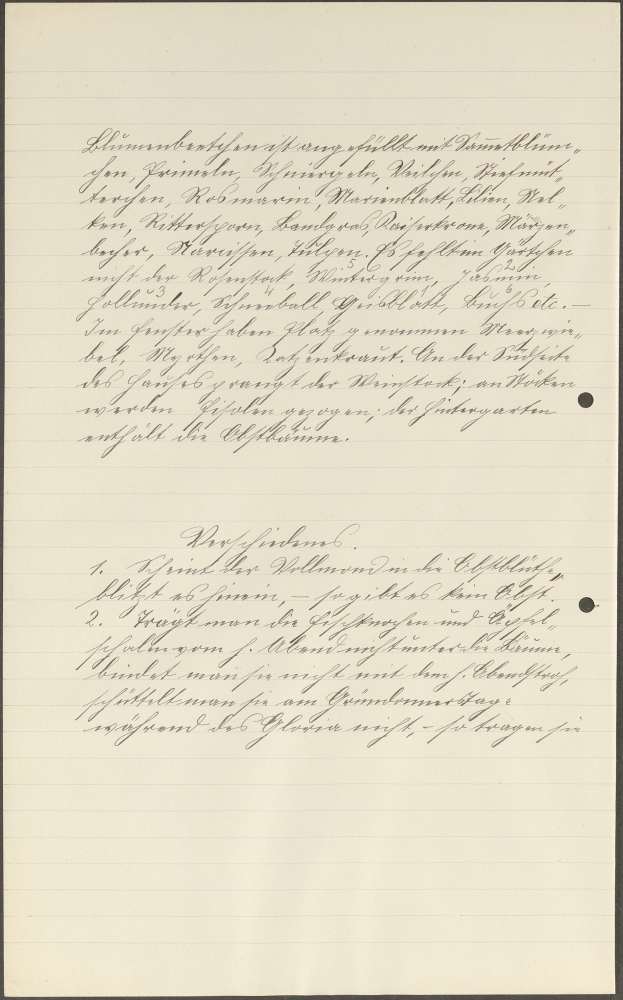 Blumenbeetchen ist angefüllt mit Sam̅etblüm„
chen, Primeln, Schmergeln, Veilchen, Stiefmüt„
terchen, Rosmarin, Marienblatt, Lilien, Nel„
ken, Rittersporn, Bandgras, Kaiserkrone, Märzen„
becher, Narcissen, Tulpen. Es fehlt im Gärtchen
nicht der Rosenstock, Wintergrün, Jasmin,
Hollunder, Schneeball, Geisblatt, Buchs etc. –
Im Fenster haben Platz genommen Meerzwie„
bel, Myrthen, Katzenkraut. An der Südseite
des Hauses prangt der Weinstock; an Stöcken
werden Fisolen gezogen; der Hintergarten
enthält die Obstbäume.
Verschiedenes.
1. Scheint der Vollmond in die Obstblüthe,
blitzt es hinein, – so gibt es kein Obst.
2. Trägt man die Fischknochen und Äpfel„
schalen vom h. Abend nicht unter die Bäume,
bindet man sie nicht mit dem h. Abendstroh,
schüttelt man sie am Gründonnerstage
während des Gloria nicht, – so tragen sie